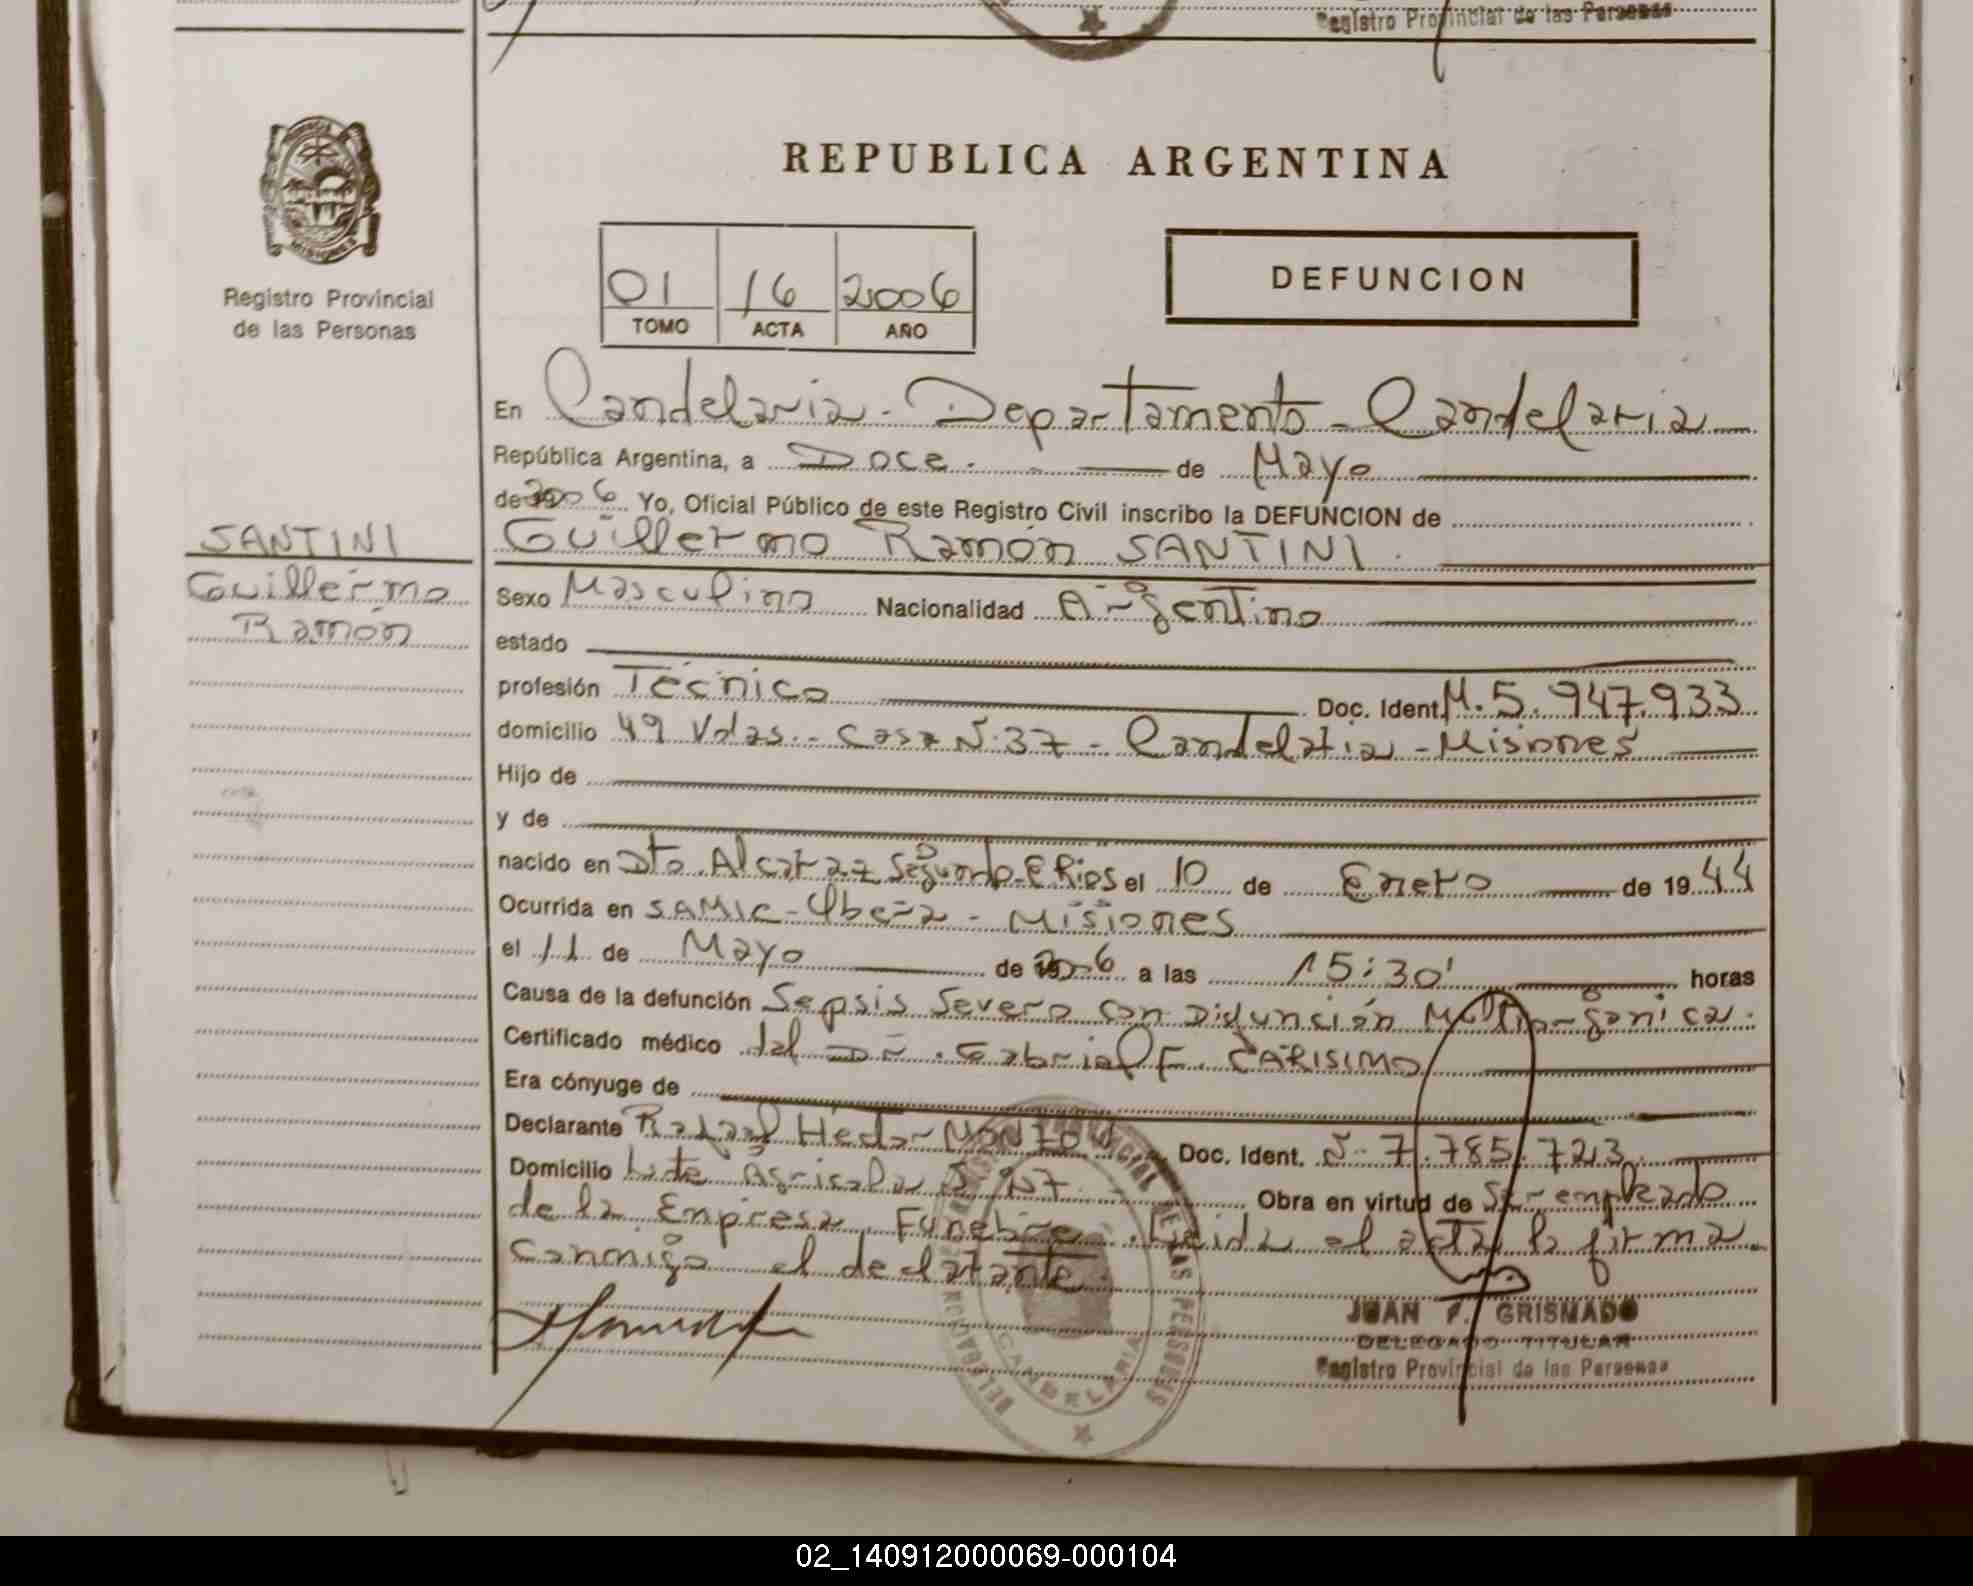 Registro Provincial de las Personas
MISIONES
Registro Provincial
de las Personas
REPUBLICA ARGENTINA
01 16 2006
TOMO ACTA AÑO
DEFUNCION
En Candelaria - Departamento - Candelaria
República Argentina, a Doce. de Mayo
de 2006 Yo, Oficial Público de este Registro Civil inscribo la DEFUNCION de
SANTINI
Guillermo Ramón SANTINI.
Guillermo
Ramón
Sexo Masculino Nacionalidad Argentino
estado
profesión Técnico Doc. Ident. M. 5.947.933
domicilio 49 Vdas. - Casa N. 37 - Candelaria - Misiones
Hijo de
y de
nacido en Dto. Alcaraz Segundo - E Rios el 10 de Enero de 1944
Ocurrida en SAMIC - Misiones
el 11 de Mayo de 2006 a las 15:30' horas
Causa de la defunción Sepsis Severa con Difunción Multiorgánica.
Certificado médico del Dr. Gabriel F. CARISIMO
Era cónyuge de
Declarante Rafael Hector Doc. Ident. N. 7.785.723
Domicilio Lote Agricola Obra en virtud de Ser empleado
de la Empresa Funebre. Leida el acta la firma
conmigo el declarante.
JUAN P. GRISMADO
DELEGADO TITULAR
Registro Provincial de las Personas
REGISTRO PROVINCIAL DE LAS PERSONAS
DELEGACION
CANDELARIA
02_140912000069-000104